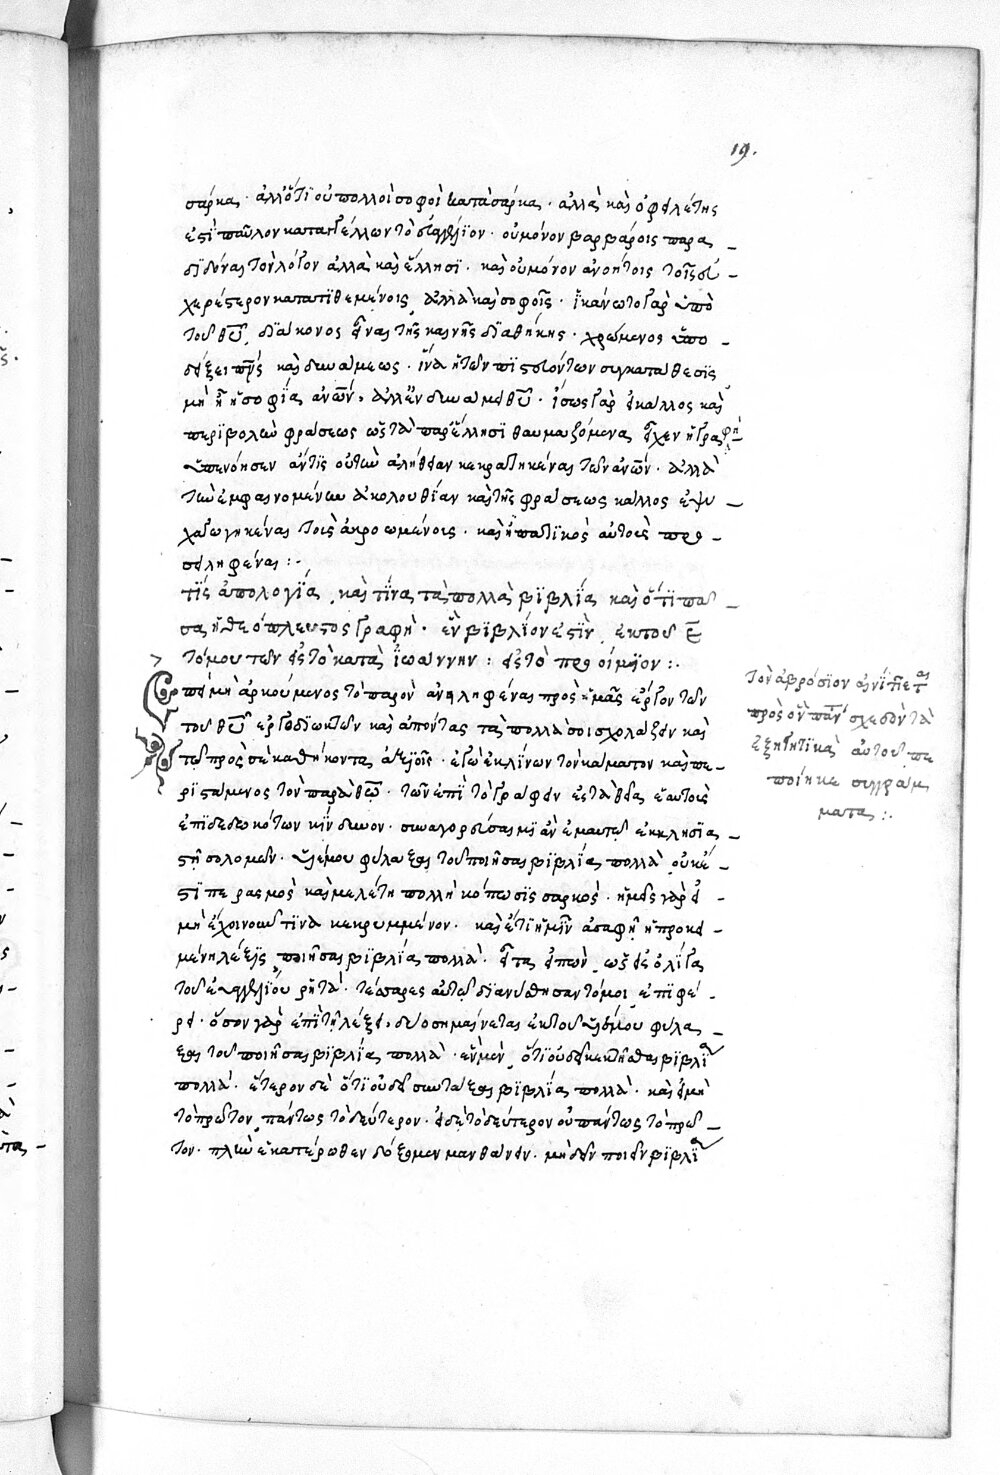 19.
σάρκα· ἀλλ' ὅτι οὐ πολλοὶ σοφοὶ κατὰ σάρκα· ἀλλὰ καὶ ὀφειλέτης
ἐστὶ παῦλον καταγγέλλων τὸ εὐαγγέλϊον· οὐ μόνον βαρβάροις παρα
διδόναι τὸν λόγον ἀλλὰ καὶ ἕλλησϊ· καὶ οὐ μόνον ἀνοήτοις τοῖς εὐ
χερέστερον κατατιθεμένοις, ἀλλὰ καὶ σοφοῖς· ἱκάνωτο γὰρ ὑπὸ
τοῦ θῦ, διάκονος εἶναι τῆς καινῆς διαθήκης· χρώμενος ὑπο
δείξει πνς καὶ δυνάμεως· ἵνα ἡ τῶν πιστευόντων συγκατάθεσις
μὴ ᾖ ἡ σοφία ἀνων, ἀλλ' ἐν δυνάμει θῦ· ἴσως γὰρ εἰ κάλλος καὶ
περιβολὴν φράσεως ὡς τὰ παρ' ἕλλησι θαυμαζόμενα εἶχεν ἡ γραφὴ
ὑπενόησεν ἄν τις οὐ τὴν ἀλήθειαν κεκρατηκέναι τῶν ἀνων· ἀλλὰ
τὴν ἐμφαινομένην ἀκολουθίαν καὶ τῆς φράσεως κάλλος ἐψυ
χαγωγηκέναι τοὺς ἀκροωμένους· καὶ ἠπατικὸς αὐτοὺς προσ
ειληφέναι:·
τίς ἀπολογία, καὶ τίνα τὰ πολλὰ βιβλία καὶ ὅτι πᾶ
σα ἡ θεόπλευστος γραφὴ· ἓν βιβλίον ἐστὶν, ἐκ τοῦ ε
τόμου τῶν εἰς τὸ κατὰ ἰωάννην: εἰς τὸ προοίμϊον:·
Ἐπεὶ μὴ ἀρκούμενος τὸ παρὸν ἀνειληφέναι πρὸς ἡμᾶς ἔργον τῶν
τοῦ θῦ ἐργοδιωκτῶν καὶ ἀπόντας τὰ πολλὰ σοι σχολάζειν καὶ
τῷ πρὸς σὲ καθήκοντι ἀξιοῖς· ἐγὼ ἐκλίνων τὸν κάματον καὶ πε
ριϊστάμενος τὸν παρὰ θῦ· τῶν ἐπὶ τὸ γράφειν εἰς τὰ θεῖα ἑαυτοὺς
ἐπιδεδωκότων κίνδυνον· συναγορεύσαιμϊ ἂν ἐμαυτῷ ἐκκλησια
στῇ σολομῶν· υἱέ μου φύλαξαι τοῦ ποιῆσαι βιβλία πολλὰ· οὐκ ἔ
στι περασμὸς καὶ μελέτη πολλὴ κόπωσις σαρκός· ἡμεῖς γὰρ εἰ
μὴ ἔχοι νοῦν τινα κεκρυμμένον· καὶ ἔτι ἡμῖν ἀσαφῆ ἡ προκει
μένη λέξις, ποιῆσαι βιβλία πολλὰ· εἶτα εἰπὼν, ὡς εἰς ὀλίγα
τοῦ εὐαγγελίου ῥητὰ· τέσσαρες αὐτῷ διανύθησαν τόμοι, ἐπιφέ
ρει· ὅσον γὰρ ἐπὶ τῇ λέξει, δύο σημαίνεται ἐκ τοῦ υἱέ μου φύλα
ξαι τοῦ ποιῆσαι βιβλία πολλὰ· ἓν μὲν, ὅτι οὐ δεῖ κεκτῆσθαι βιβλία
πολλὰ· ἕτερον δὲ ὅτι οὐ δεῖ συντάξαι βιβλία πολλὰ· καὶ εἰ μὴ
τὸ πρῶτον, πάντως τὸ δεύτερον· εἰ δὲ τὸ δεύτερον οὐ πάντως τὸ πρῶ
τον· πλὴν ἑκατέρωθεν δόξομεν μανθάνειν· μὴ δεῖν ποιεῖν βιβλία
τὸν ἀβρόσϊον αἰνίττεται
πρὸς ὃν πάντα σχεδὸν τὰ
ἐξηγητϊκὰ αὐτοῦ πε
ποίηκε συγγράμ
ματα:·